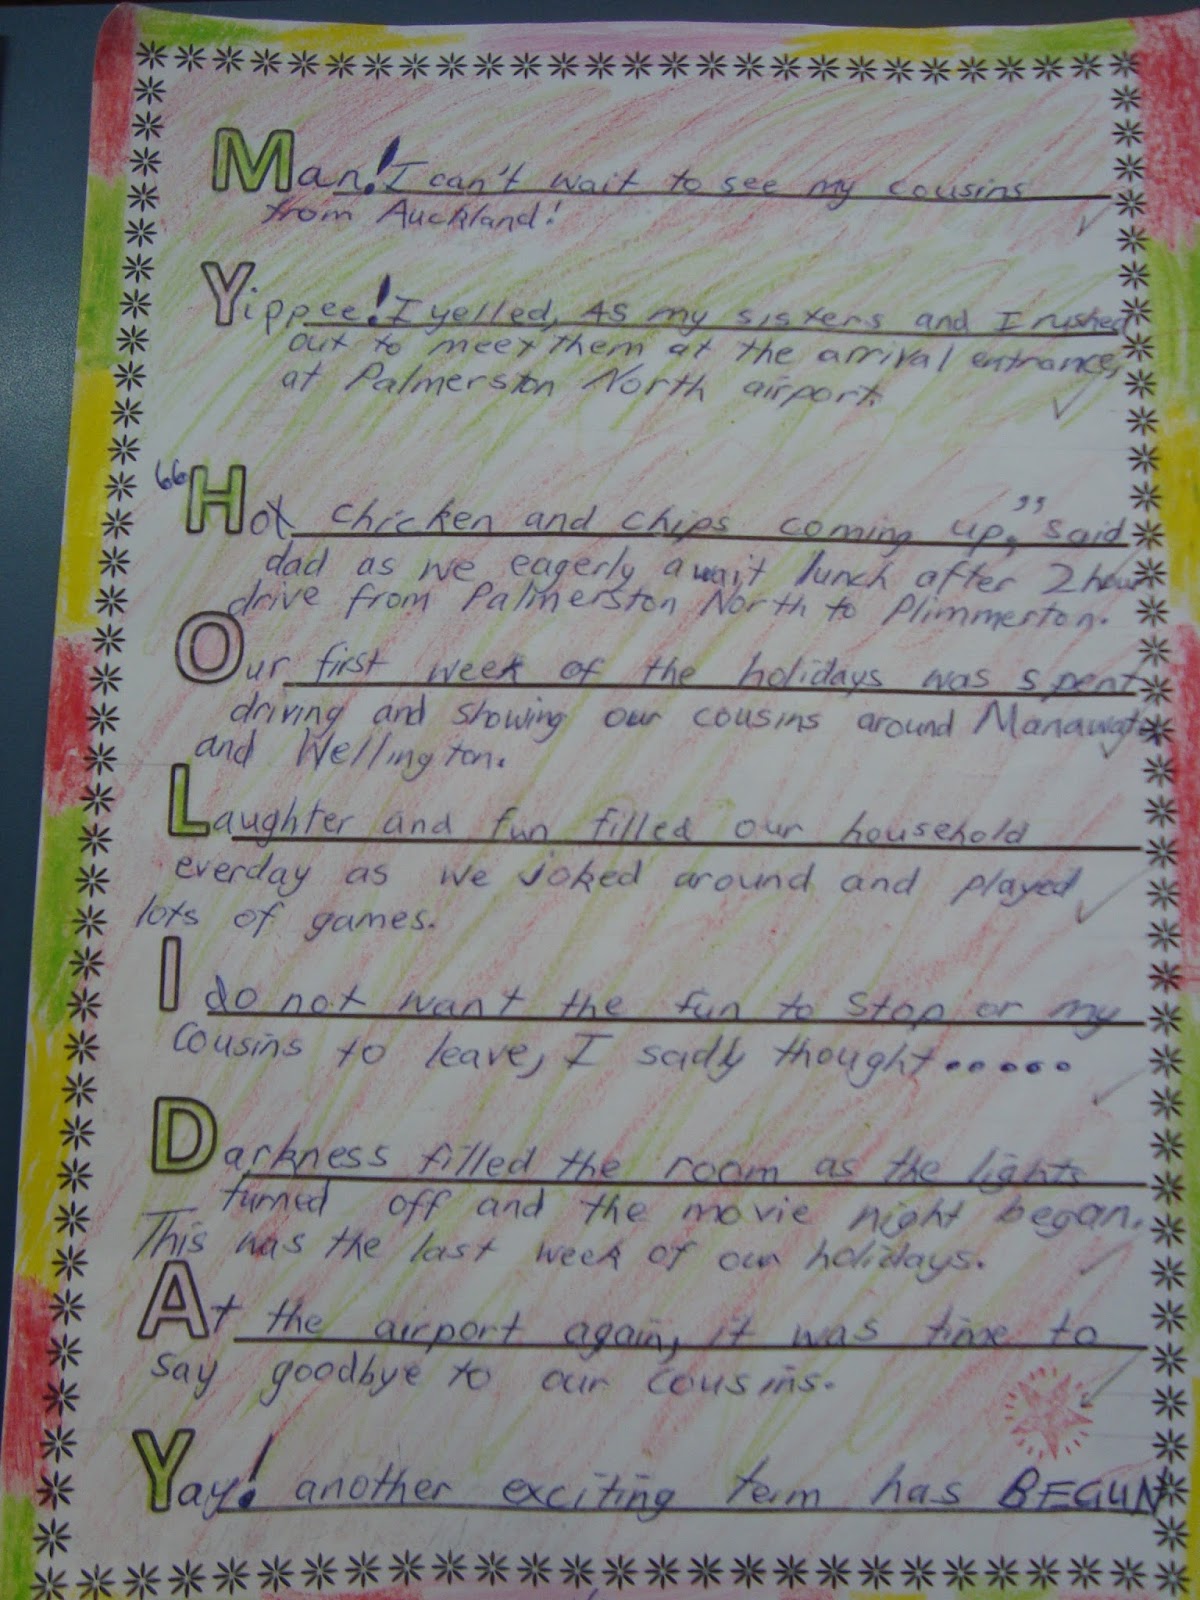 Man! I can't wait to see my cousins
from Auckland!
Yippee! I yelled, As my sisters and I rushed
out to meet them at the arrival entrance,
at Palmerston North airport.
"Hot chicken and chips coming up," said
dad as we eagerly await lunch after 2 hour
drive from Palmerston North to Plimmerton.
Our first week of the holidays was spent
driving and showing our cousins around Manawatu
and Wellington.
Laughter and fun filled our household
everday as we joked around and played
lots of games.
I do not want the fun to stop or my
cousins to leave, I sadly thought.....
Darkness filled the room as the lights
turned off and the movie night began.
This was the last week of our holidays.
At the airport again, it was time to
say goodbye to our cousins.
Yay! another exciting term has BEGUN